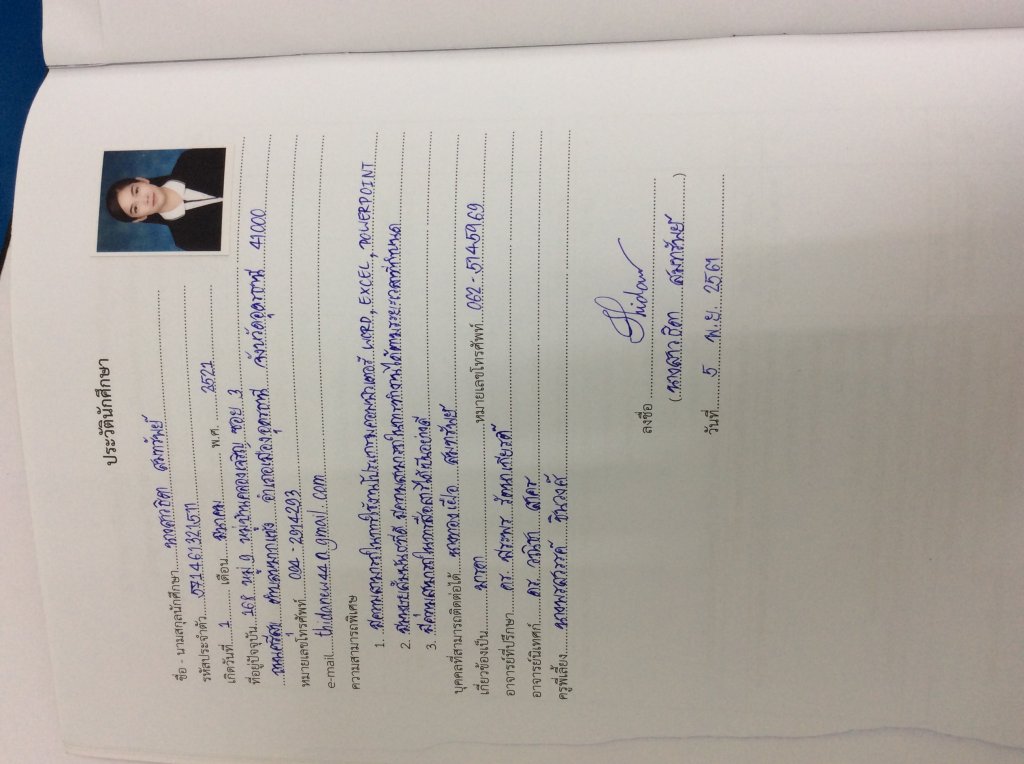 ประวัตินักศึกษา
ชื่อ - นามสกุลนักศึกษา นางสาวธิดา สมทรัพย์
รหัสประจำตัว 57146132151
เกิดวันที่ 1 เดือน มีนาคม พ.ศ. 2521
ที่อยู่ปัจจุบัน 168 หมู่ 9 หมู่บ้านคลองเจริญ ซอย 3
ตำบลหมากแข้ง อำเภอเมืองอุดรธานี จังหวัดอุดรธานี 41000
หมายเลขโทรศัพท์
e-mail thidanew440.gmail.com
ความสามารถพิเศษ
1. มีความสามารถในการใช้งานโปรแกรมคอมพิวเตอร์ WORD, EXCEL, POWERPOINT
2. มีความสามารถในการทำงานได้ตามระยะเวลาที่กำหนด
3. มีความสามารถในการสื่อสารได้เป็นอย่างดี
บุคคลที่สามารถติดต่อได้ สมทรัพย์
เกี่ยวข้องเป็น มารดา หมายเลขโทรศัพท์ 062-5145969
อาจารย์ที่ปรึกษา ดร. รัตนเกียรติ
อาจารย์นิเทศก์ ดร. วนิชา สาคร
ครูพี่เลี้ยง นางพรสวรรค์
ลงชื่อ Thidaw
(นางสาวธิดา สมทรัพย์)
วันที่ 5 พ.ย. 2561